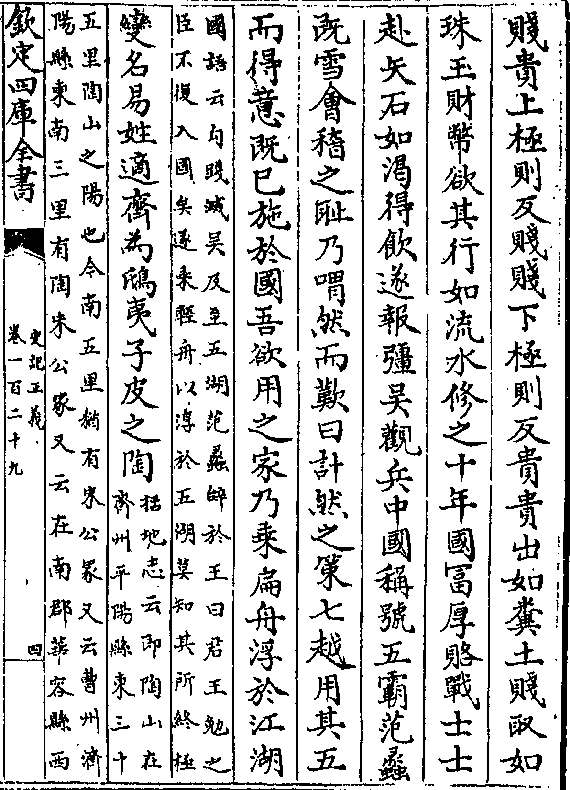 賤貴上極則反賤賤下極則反貴貴出如糞土賤取如
珠玉財幣欲其行如流水修之十年國冨厚賂戰士士
赴矢石如渴得飲遂報彊吳觀兵中國稱號五霸范蠡
既雪會稽之恥乃喟然而歎曰計然之策七越用其五
而得意既已施於國吾欲用之家乃乘扁舟浮於江湖
國語云勾踐滅吳反至五湖范蠡辭於王曰君王勉之
臣不復入國矣遂乘輕舟以浮於五湖莫知其所終極
變名易姓適齊為鴟夷子皮之陶
括地志云即陶山在
齊州平陽縣東三十
五里陶山之陽也今南五里猶有朱公冢又云曹州濟
陽縣東南三里有陶朱公冢又云在南郡華容縣西
欽定四庫全書
史記正義
卷一百二十九
四